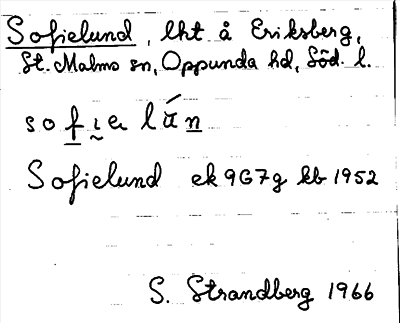 Sofielund, lht å Eriksberg,
St. Malms sn, Oppunda hd, Söd. l.
sofiɐ lán
Sofielund ek 9G7g kb 1952
S. Strandberg 1966